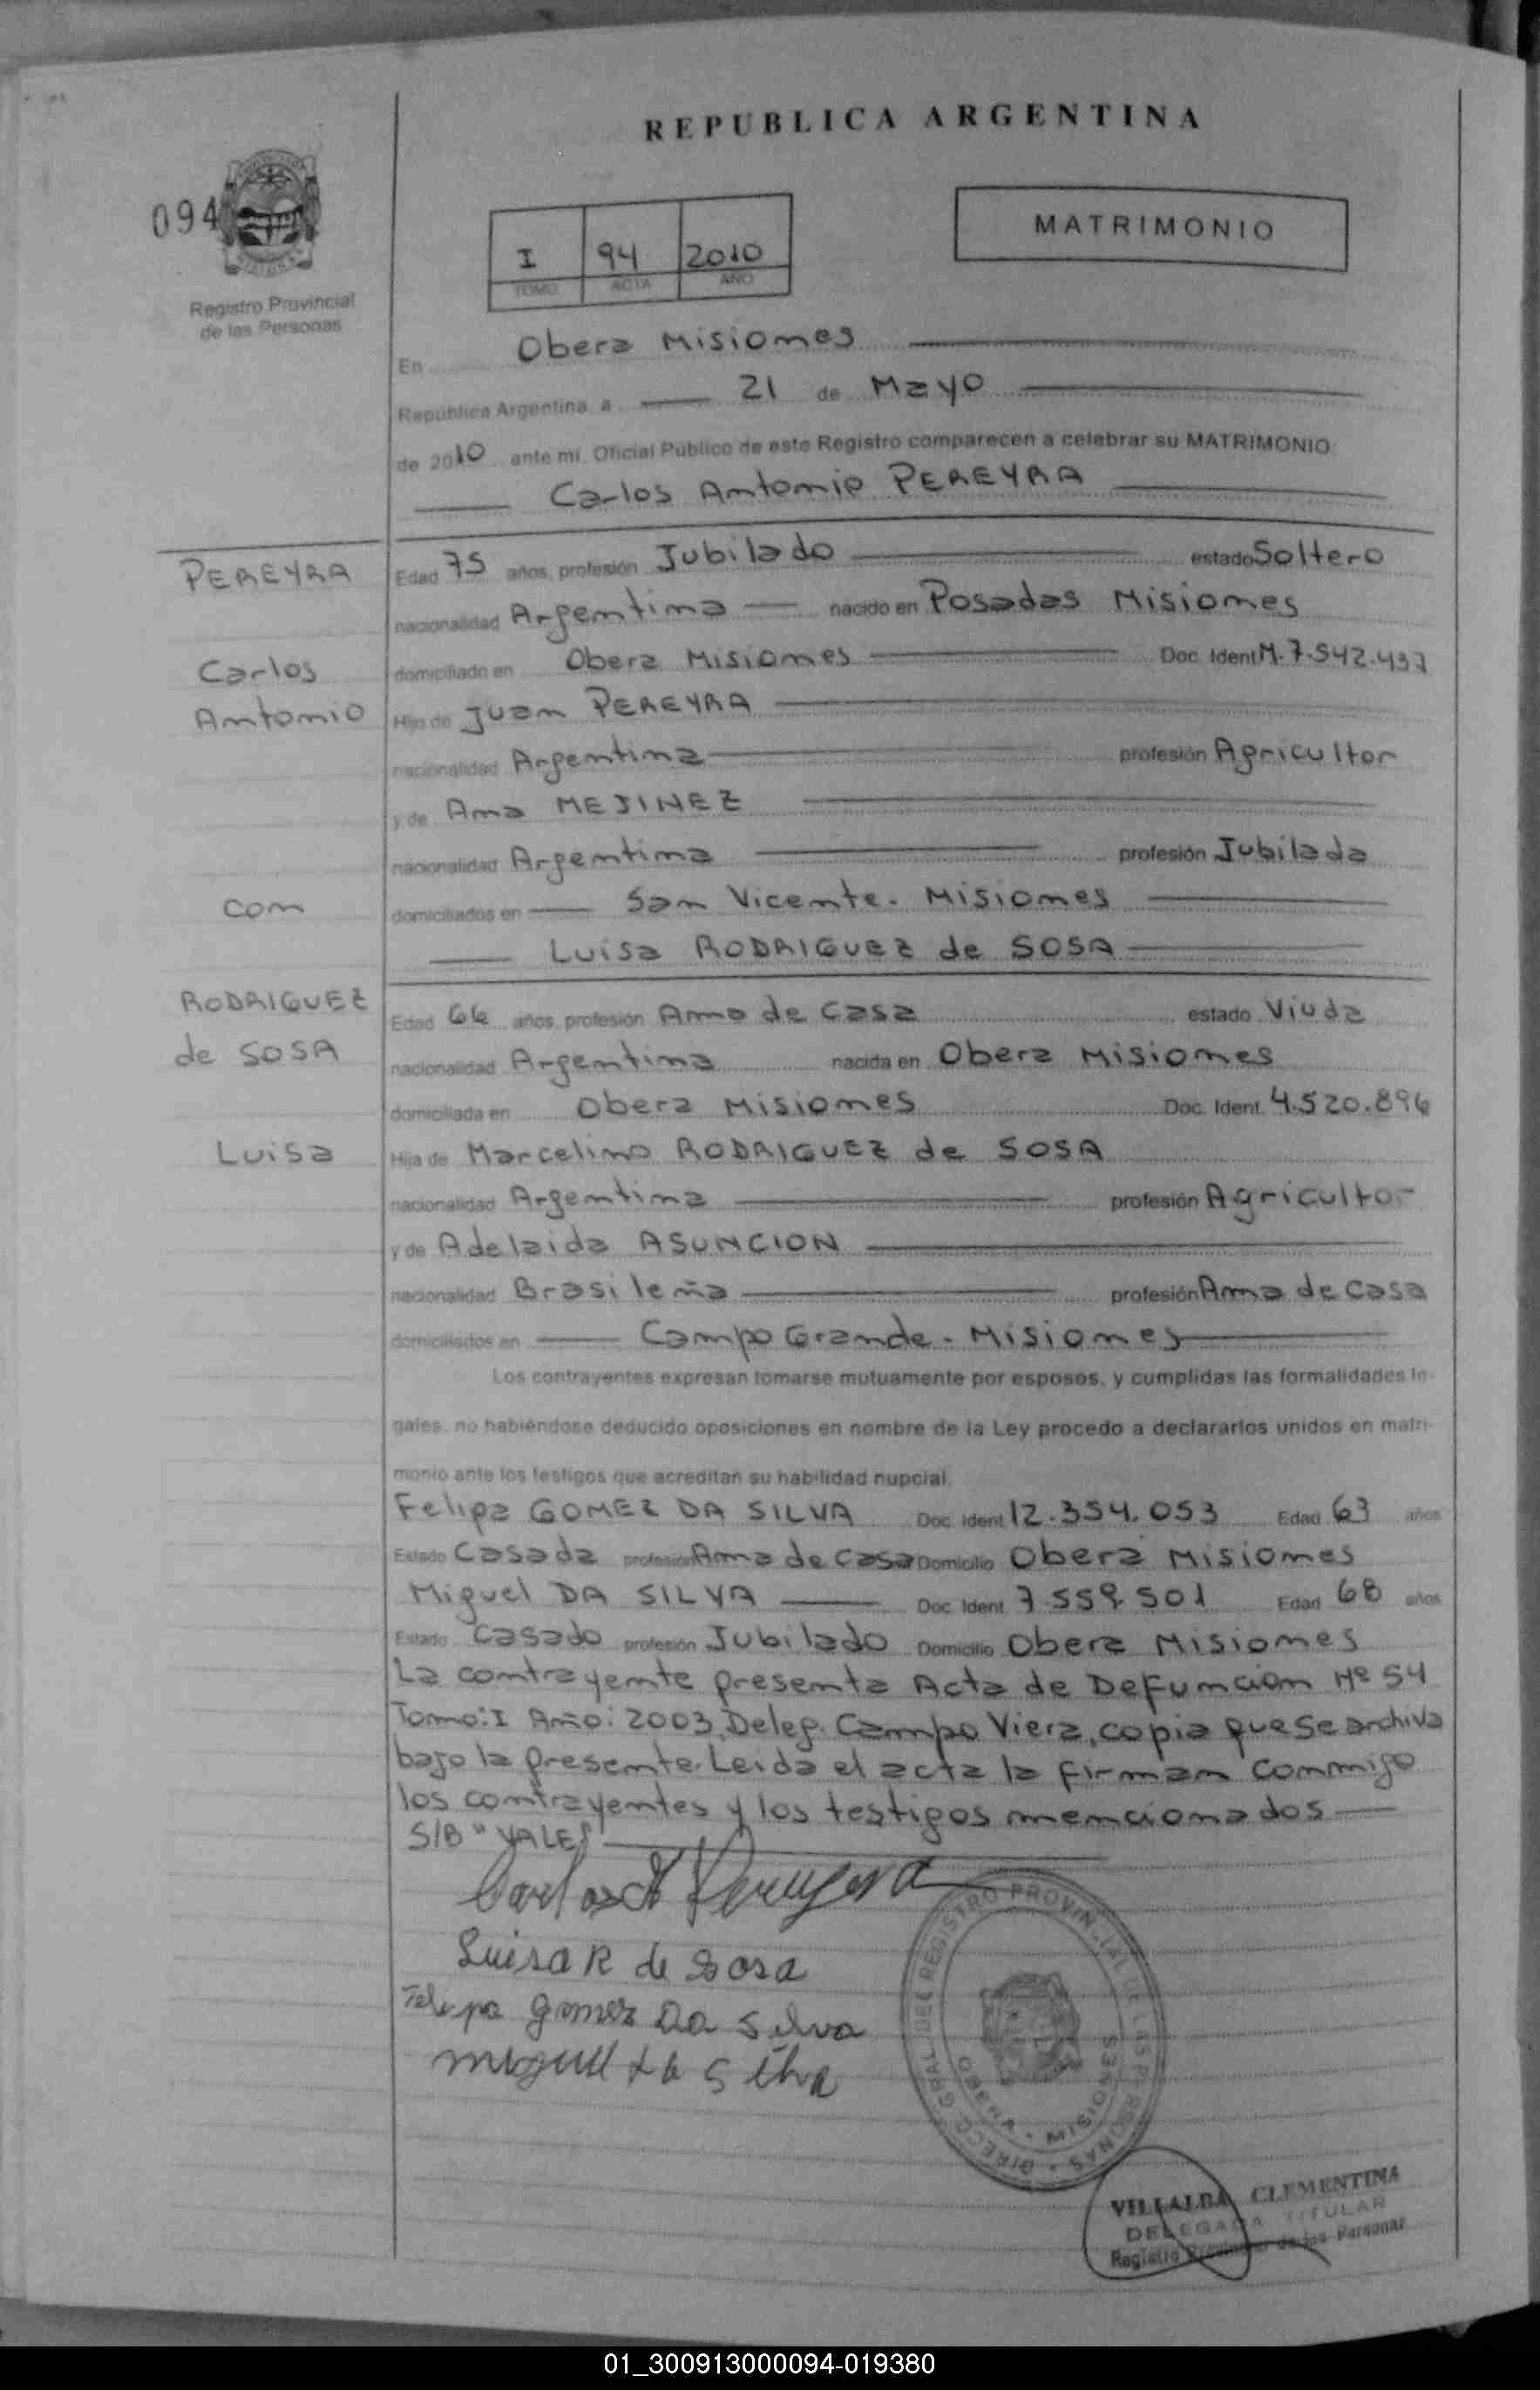 REPUBLICA ARGENTINA
094
Registro Provincial
de las Personas
I 94 2010
TOMO ACTA AÑO
MATRIMONIO
En Obera Misiones
República Argentina, a 21 de Mayo
de 2010 ante mí, Oficial Público de este Registro comparecen a celebrar su MATRIMONIO
Carlos Antonio PEREYRA
PEREYRA
Edad 75 años, profesión Jubilado estado Soltero
nacionalidad Argentina nacido en Posadas Misiones
Carlos
domiciliado en Obera Misiones Doc. Ident M. 7.542.437
Antonio
Hijo de Juan PEREYRA
nacionalidad Argentina profesión Agricultor
y de Ana MEJINEZ
nacionalidad Argentina profesión Jubilada
con
domiciliados en San Vicente. Misiones
Luisa RODRIGUEZ de SOSA
RODRIGUEZ
Edad 66 años, profesión Ama de Casa estado Viuda
de SOSA
nacionalidad Argentina nacida en Obera Misiones
domiciliada en Obera Misiones Doc. Ident. 4.520.896
Luisa
Hija de Marcelino RODRIGUEZ de SOSA
nacionalidad Argentina profesión Agricultor
y de Adelaida ASUNCION
nacionalidad Brasileña profesión Ama de Casa
domiciliados en Campo Grande - Misiones
Los contrayentes expresan tomarse mutuamente por esposos, y cumplidas las formalidades le-
gales, no habiéndose deducido oposiciones en nombre de la Ley procedo a declararlos unidos en matri-
monio ante los testigos que acreditan su habilidad nupcial.
Felipa GOMEZ DA SILVA Doc. Ident 12.354.053 Edad 63 años
Estado Casada profesión Ama de Casa Domicilio Obera Misiones
Miguel DA SILVA Doc. Ident. 7.559.501 Edad 68 años
Estado Casado profesión Jubilado Domicilio Obera Misiones
La contrayente presenta Acta de Defuncion Nº 54
Tomo: I Año: 2003, Deleg. Campo Viera, copia que se archiva
bajo la presente. Leida el acta la firman conmigo
los contrayentes y los testigos mencionados
S/B "VALES"
Carlos A Pereyra
Luisa R de Sosa
Felipa gomez Da Silva
miguel da Silva
DIRECC. GRAL. DEL REGISTRO PROVINCIAL DE LAS PERSONAS
OBERA - MISIONES
VILLALBA CLEMENTINA
DELEGADA TITULAR
Registro Provincial de las Personas
01_300913000094-019380